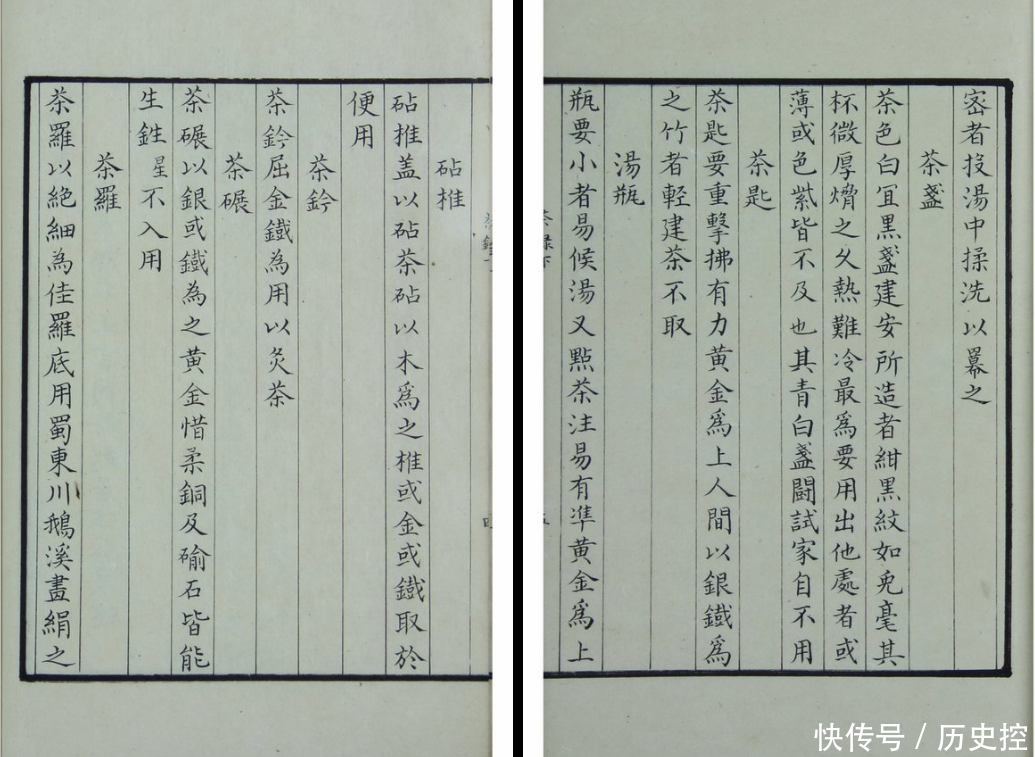 砧椎
砧椎盖以砧茶砧以木爲之椎或金或鐵取於
便用
茶鈐
茶鈐屈金鐵為用以炙茶
茶碾
茶碾以銀或鐵為之黄金惜柔銅及碖石皆能
生鉎星不入用
茶羅
茶羅以絶細為佳羅底用蜀東川鵝溪畫絹之
密者投湯中揉洗以羃之
茶盞
茶色白冝黑盞建安所造者紺黒紋如兎毫其
杯微厚熁之乆熱難冷最爲要用出他處者或
薄或色紫皆不及也其青白盞闘試家自不用
茶匙
茶匙要重擊拂有力黄金爲上人間以銀鐵爲
之竹者輕建茶不取
湯瓶
瓶要小者易候湯又點茶注易有凖黄金爲上
快传号 / 历史控